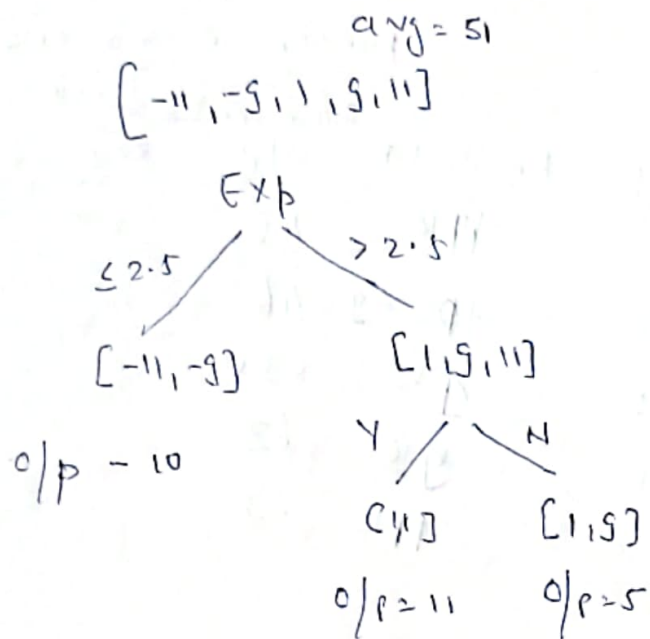 avg = 51
[-11, -9, 1, 9, 11]
Exp
≤ 2.5
> 2.5
[-11, -9]
[1, 9, 11]
Y
N
o/p - 10
[11]
[1, 9]
o/p = 11
o/p = 5